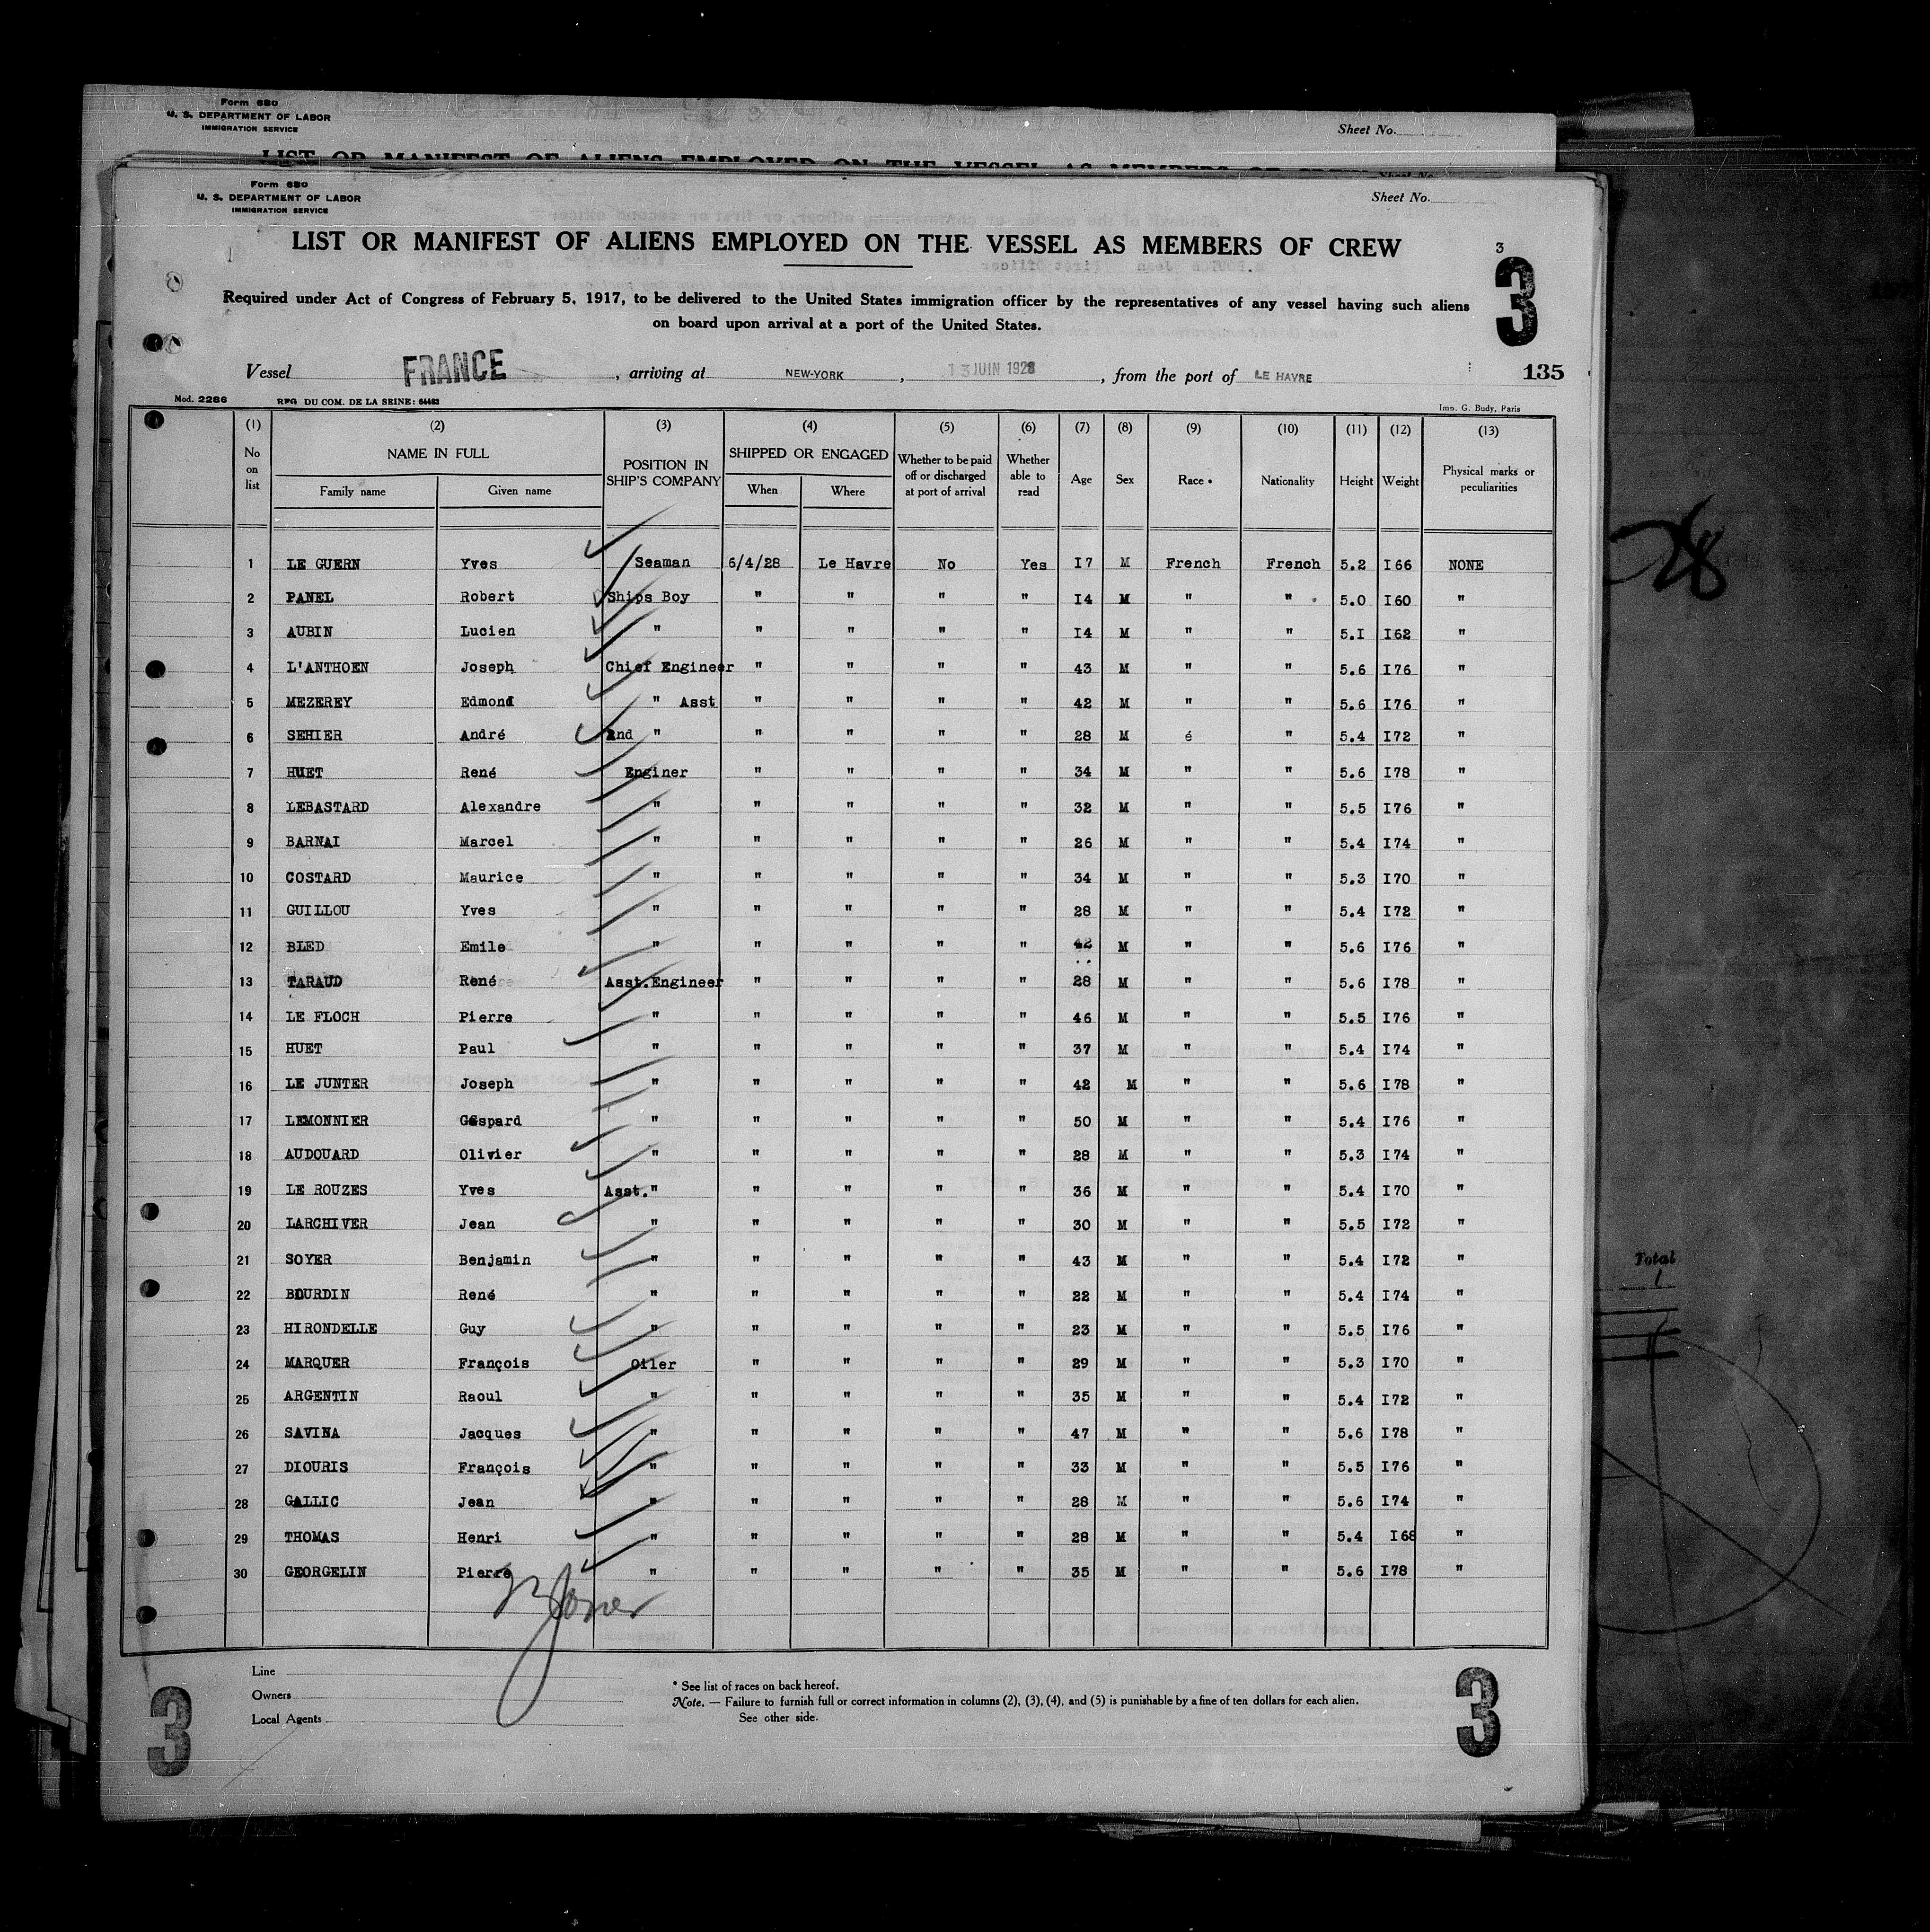 Form 680
U. S. DEPARTMENT OF LABOR
IMMIGRATION SERVICE
Sheet No.
LIST OR MANIFEST OF ALIENS EMPLOYED ON THE VESSEL AS MEMBERS OF CREW
Form 680
U. S. DEPARTMENT OF LABOR
IMMIGRATION SERVICE
Sheet No.
LIST OR MANIFEST OF ALIENS EMPLOYED ON THE VESSEL AS MEMBERS OF CREW
3
3
Required under Act of Congress of February 5, 1917, to be delivered to the United States immigration officer by the representatives of any vessel having such aliens
on board upon arrival at a port of the United States.
Vessel FRANCE, arriving at NEW-YORK, 13 JUIN 1928, from the port of LE HAVRE 135
Mod. 2286 REG. DU COM. DE LA SEINE: 64463 Imp. G. Budy, Paris
(1) (2) (3) (4) (5) (6) (7) (8) (9) (10) (11) (12) (13)
No on list NAME IN FULL Family name Given name POSITION IN SHIP'S COMPANY SHIPPED OR ENGAGED When Where Whether to be paid off or discharged at port of arrival Whether able to read Age Sex Race * Nationality Height Weight Physical marks or peculiarities
1 LE GUERN Yves Seaman 6/4/28 Le Havre No Yes I7 M French French 5.2 I66 NONE
2 PANEL Robert Ships Boy " " " " I4 M " " 5.0 I60 "
3 AUBIN Lucien " " " " " I4 M " " 5.I I62 "
4 L'ANTHOEN Joseph Chief Engineer " " " " 43 M " " 5.6 I76 "
5 MEZEREY Edmond " Asst " " " " 42 M " " 5.6 I76 "
6 SEHIER André 2nd " " " " " 28 M é " 5.4 I72 "
7 HUET René Enginer " " " " 34 M " " 5.6 I78 "
8 LEBASTARD Alexandre " " " " " 32 M " " 5.5 I76 "
9 BARNAI Marcel " " " " " 26 M " " 5.4 I74 "
10 COSTARD Maurice " " " " " 34 M " " 5.3 I70 "
11 GUILLOU Yves " " " " " 28 M " " 5.4 I72 "
12 BLED Emile " " " " " 42 M " " 5.6 I76 "
13 TARAUD René Asst.Engineer " " " " 28 M " " 5.6 I78 "
14 LE FLOCH Pierre " " " " " 46 M " " 5.5 I76 "
15 HUET Paul " " " " " 37 M " " 5.4 I74 "
16 LE JUNTER Joseph " " " " " 42 M " " 5.6 I78 "
17 LEMONNIER Gaspard " " " " " 50 M " " 5.4 I76 "
18 AUDOUARD Olivier " " " " " 28 M " " 5.3 I74 "
19 LE ROUZES Yves Asst." " " " " 36 M " " 5.4 I70 "
20 LARCHIVER Jean " " " " " 30 M " " 5.5 I72 "
21 SOYER Benjamin " " " " " 43 M " " 5.4 I72 "
22 BOURDIN René " " " " " 22 M " " 5.4 I74 "
23 HIRONDELLE Guy " " " " " 23 M " " 5.5 I76 "
24 MARQUER François Oiler " " " " 29 M " " 5.3 I70 "
25 ARGENTIN Raoul " " " " " 35 M " " 5.4 I72 "
26 SAVINA Jacques " " " " " 47 M " " 5.6 I78 "
27 DIOURIS François " " " " " 33 M " " 5.5 I76 "
28 GALLIC Jean " " " " " 28 M " " 5.6 I74 "
29 THOMAS Henri " " " " " 28 M " " 5.4 I68 "
30 GEORGELIN Pierre " " " " " 35 M " " 5.6 I78 "
Line
Owners
Local Agents
* See list of races on back hereof.
Note. — Failure to furnish full or correct information in columns (2), (3), (4), and (5) is punishable by a fine of ten dollars for each alien.
See other side.
3
3
Total